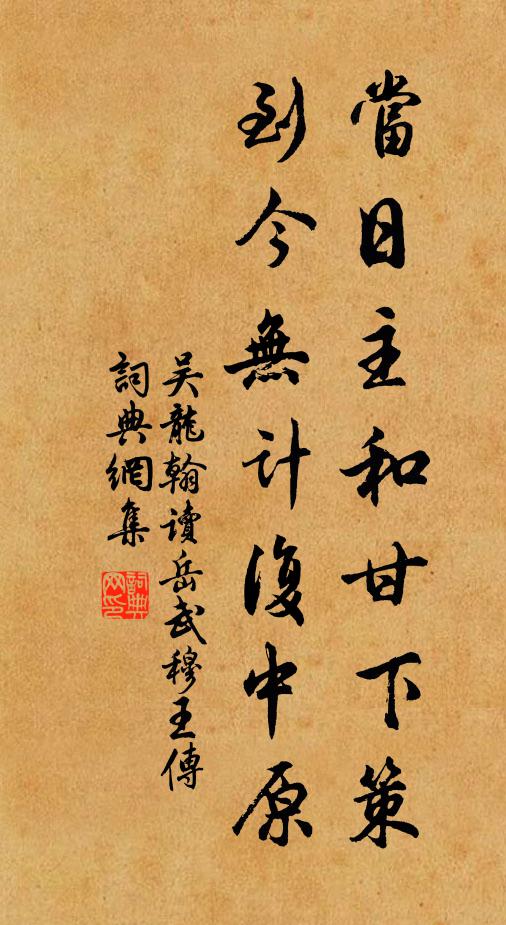 當日主和甘下策
到今無計復中原
吴龍翰讀岳武穆王傳
詞典網集
詞典網印